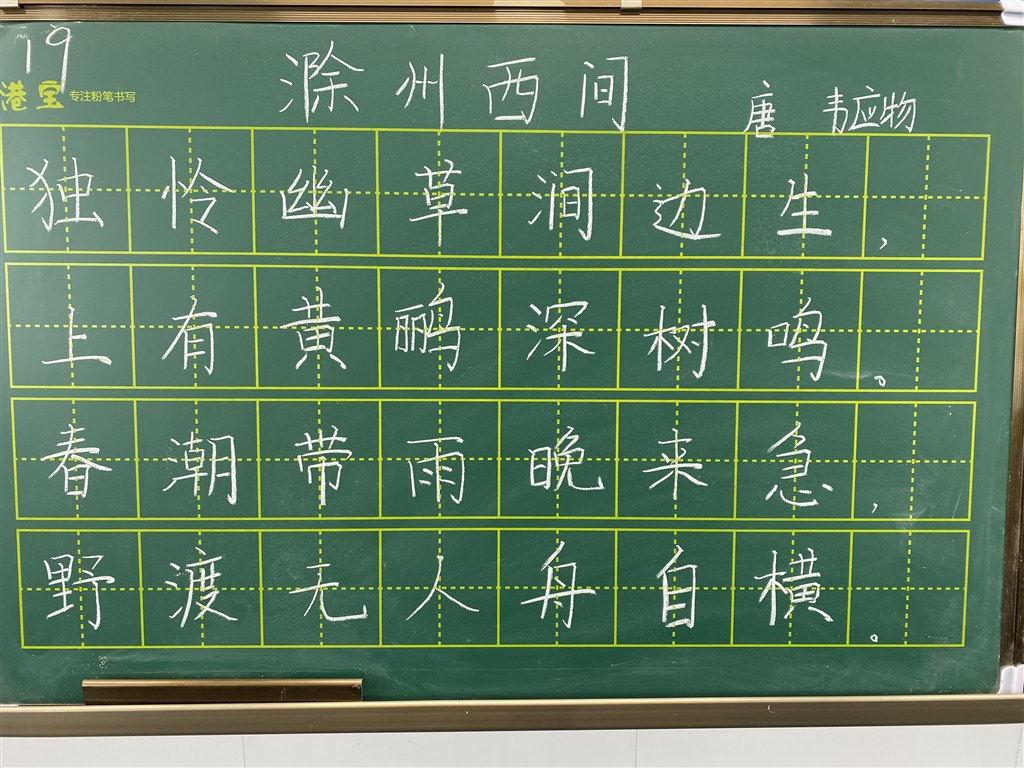 19
港宝 专注粉笔书写
滁州西间
唐 韦应物
独怜幽草涧边生，
上有黄鹂深树鸣。
春潮带雨晚来急，
野渡无人舟自横。